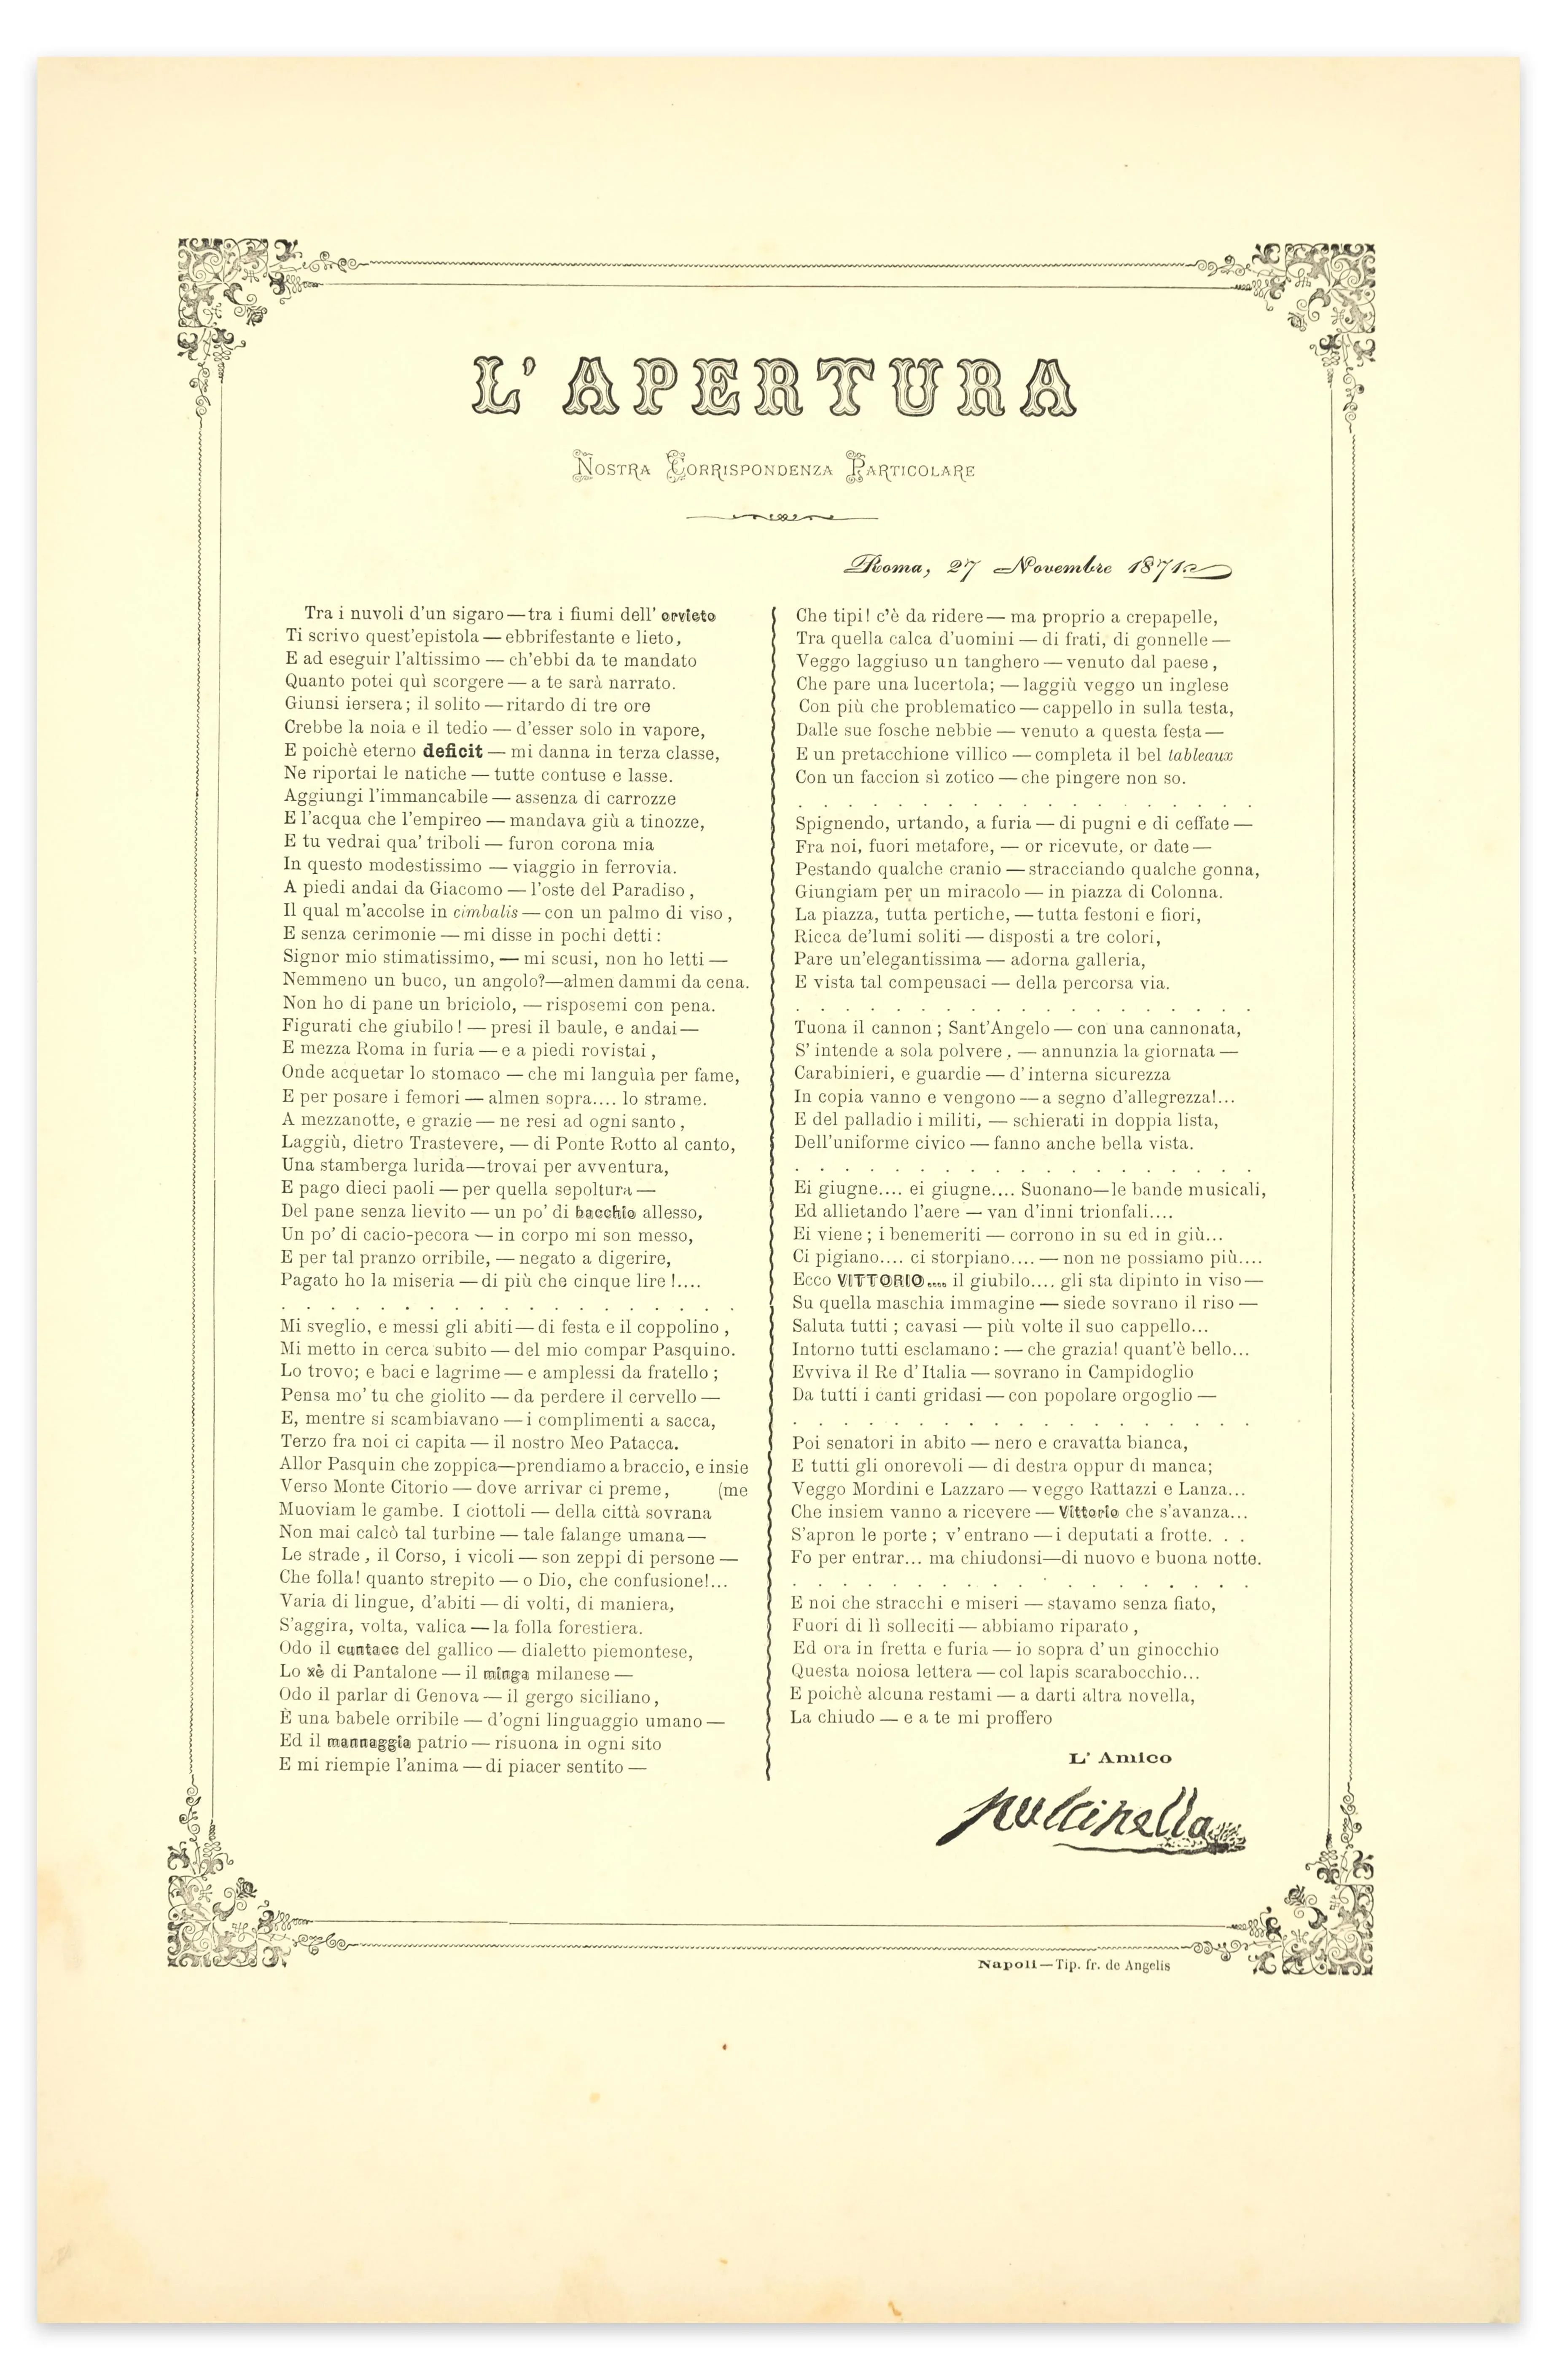 L' APERTURA
Nostra Corrispondenza Particolare
Roma, 27 Novembre 1871
Tra i nuvoli d'un sigaro—tra i fiumi dell' orvieto
Ti scrivo quest'epistola — ebbrifestante e lieto,
E ad eseguir l'altissimo — ch'ebbi da te mandato
Quanto potei quì scorgere — a te sarà narrato.
Giunsi iersera; il solito — ritardo di tre ore
Crebbe la noia e il tedio — d'esser solo in vapore,
E poichè eterno deficit — mi danna in terza classe,
Ne riportai le natiche — tutte contuse e lasse.
Aggiungi l'immancabile — assenza di carrozze
E l'acqua che l'empireo — mandava giù a tinozze,
E tu vedrai qua' triboli — furon corona mia
In questo modestissimo — viaggio in ferrovia.
A piedi andai da Giacomo — l'oste del Paradiso ,
Il qual m'accolse in cimbalis — con un palmo di viso ,
E senza cerimonie — mi disse in pochi detti :
Signor mio stimatissimo, — mi scusi, non ho letti —
Nemmeno un buco, un angolo?—almen dammi da cena.
Non ho di pane un briciolo, — risposemi con pena.
Figurati che giubilo ! — presi il baule, e andai—
E mezza Roma in furia — e a piedi rovistai ,
Onde acquetar lo stomaco — che mi languìa per fame,
E per posare i femori — almen sopra.... lo strame.
A mezzanotte, e grazie — ne resi ad ogni santo ,
Laggiù, dietro Trastevere, — di Ponte Rotto al canto,
Una stamberga lurida—trovai per avventura,
E pago dieci paoli — per quella sepoltura —
Del pane senza lievito — un po' di bacchio allesso,
Un po' di cacio-pecora — in corpo mi son messo,
E per tal pranzo orribile, — negato a digerire,
Pagato ho la miseria — di più che cinque lire !....
. . . . . . . . . . . . . . . . . . .
Mi sveglio, e messi gli abiti — di festa e il coppolino ,
Mi metto in cerca subito — del mio compar Pasquino.
Lo trovo; e baci e lagrime — e amplessi da fratello ;
Pensa mo' tu che giolito — da perdere il cervello —
E, mentre si scambiavano — i complimenti a sacca,
Terzo fra noi ci capita — il nostro Meo Patacca.
Allor Pasquin che zoppica—prendiamo a braccio, e insie
Verso Monte Citorio — dove arrivar ci preme, (me
Muoviam le gambe. I ciottoli — della città sovrana
Non mai calcò tal turbine — tale falange umana—
Le strade , il Corso, i vicoli — son zeppi di persone —
Che folla! quanto strepito — o Dio, che confusione!...
Varia di lingue, d'abiti — di volti, di maniera,
S'aggira, volta, valica — la folla forestiera.
Odo il cuntacc del gallico — dialetto piemontese,
Lo xè di Pantalone — il minga milanese —
Odo il parlar di Genova — il gergo siciliano,
È una babele orribile — d'ogni linguaggio umano —
Ed il mannaggia patrio — risuona in ogni sito
E mi riempie l'anima — di piacer sentito —
Che tipi! c'è da ridere — ma proprio a crepapelle,
Tra quella calca d'uomini — di frati, di gonnelle —
Veggo laggiuso un tanghero — venuto dal paese ,
Che pare una lucertola; — laggiù veggo un inglese
Con più che problematico — cappello in sulla testa,
Dalle sue fosche nebbie — venuto a questa festa—
E un pretacchione villico — completa il bel tableaux
Con un faccion sì zotico — che pingere non so.
. . . . . . . . . . . . . . . . . . .
Spignendo, urtando, a furia — di pugni e di ceffate —
Fra noi, fuori metafore, — or ricevute, or date —
Pestando qualche cranio — stracciando qualche gonna,
Giungiam per un miracolo — in piazza di Colonna.
La piazza, tutta pertiche, — tutta festoni e fiori,
Ricca de'lumi soliti — disposti a tre colori,
Pare un'elegantissima — adorna galleria,
E vista tal compensaci — della percorsa via.
. . . . . . . . . . . . . . . . . . .
Tuona il cannon ; Sant'Angelo — con una cannonata,
S' intende a sola polvere , — annunzia la giornata —
Carabinieri, e guardie — d' interna sicurezza
In copia vanno e vengono — a segno d'allegrezza!...
E del palladio i militi, — schierati in doppia lista,
Dell'uniforme civico — fanno anche bella vista.
. . . . . . . . . . . . . . . . . . .
Ei giugne.... ei giugne.... Suonano—le bande musicali,
Ed allietando l'aere — van d'inni trionfali....
Ei viene ; i benemeriti — corrono in su ed in giù...
Ci pigiano.... ci storpiano.... — non ne possiamo più....
Ecco VITTORIO.... il giubilo.... gli sta dipinto in viso—
Su quella maschia immagine — siede sovrano il riso —
Saluta tutti ; cavasi — più volte il suo cappello...
Intorno tutti esclamano : — che grazia! quant'è bello...
Evviva il Re d' Italia — sovrano in Campidoglio
Da tutti i canti gridasi — con popolare orgoglio —
. . . . . . . . . . . . . . . . . . .
Poi senatori in abito — nero e cravatta bianca,
E tutti gli onorevoli — di destra oppur di manca;
Veggo Mordini e Lazzaro — veggo Rattazzi e Lanza...
Che insiem vanno a ricevere — Vittorio che s'avanza...
S'apron le porte ; v' entrano — i deputati a frotte. . .
Fo per entrar... ma chiudonsi—di nuovo e buona notte.
. . . . . . . . . . . . . . . . . . .
E noi che stracchi e miseri — stavamo senza fiato,
Fuori di lì solleciti — abbiamo riparato ,
Ed ora in fretta e furia — io sopra d' un ginocchio
Questa noiosa lettera — col lapis scarabocchio...
E poichè alcuna restami — a darti altra novella,
La chiudo — e a te mi proffero
L' Amico
pulcinella
Napoli—Tip. fr. de Angelis